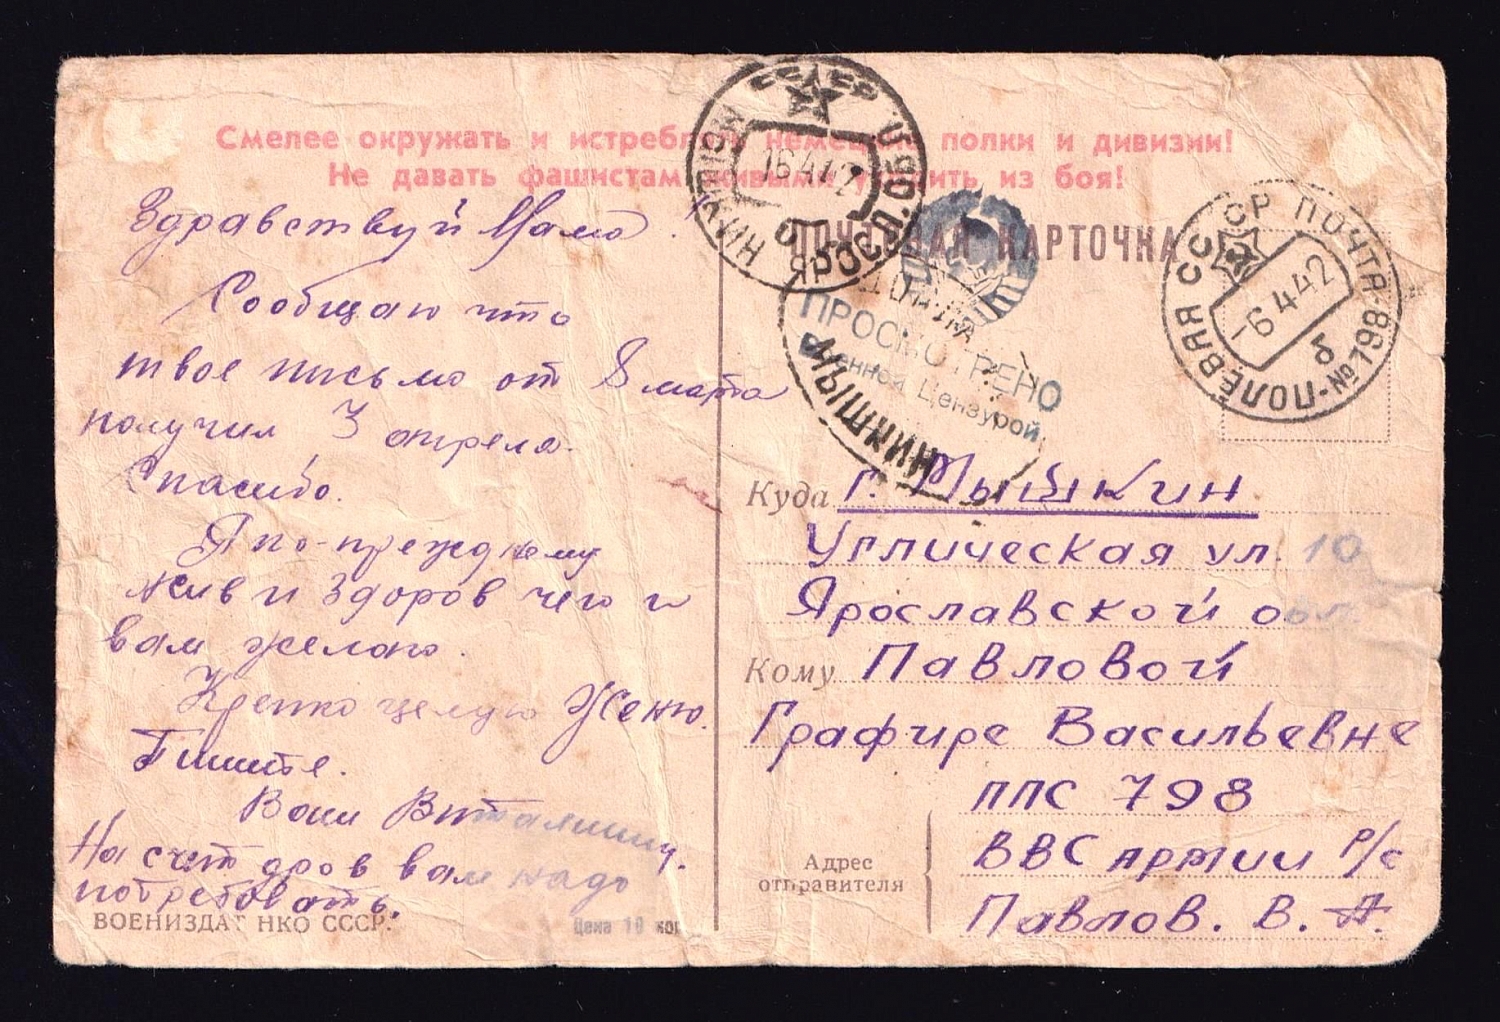 Смелее окружать и истреблять немецкие полки и дивизии!
Не давать фашистам живыми уходить из боя!
ПОЧТОВАЯ КАРТОЧКА
Здравствуй Мама!
Сообщаю что
твое письмо от 8 марта
получил 3 апреля.
Спасибо.
Я по-прежнему
жив и здоров чего и
вам желаю.
Крепко целую Женю.
Пишите.
Ваш Виталий
На счет дров вам надо
потребовать.
ВОЕНИЗДАТ НКО СССР.
Цена 10 коп
СССР
16 4 42
МЫШКИН ЯРОСЛ. ОБЛ.
ДОПЛАТИТЬ
МЫШКИН
ПРОСМОТРЕНО
Военной Цензурой
СССР ПОЧТА-№798
ПОЛЕВАЯ
-6 4 42
б
Куда г. Мышкин
Угличская ул. 10
Ярославской обл.
Кому Павловой
Графире Васильевне
ППС 798
ВВС армии Р/с
Адрес
отправителя
Павлов. В. А.